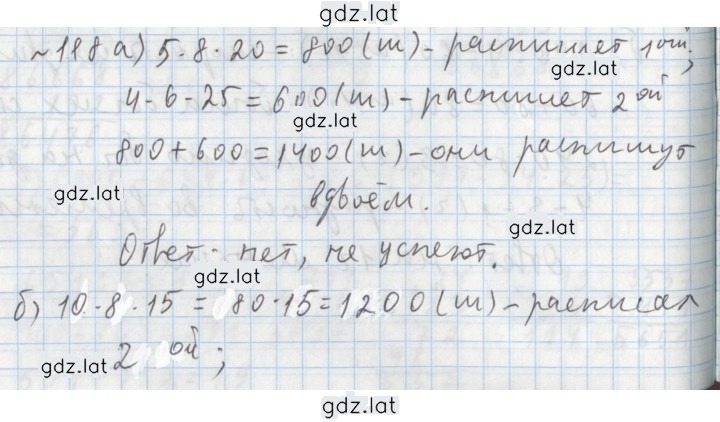 gdz.lat
№118 а) 5·8·20 = 800 (ш) - распишет 1ой;
gdz.lat
4·6·25 = 600 (ш) - распишет 2ой
gdz.lat
800+600=1400(ш) - они распишут
gdz.lat
вдвоём.
gdz.lat
Ответ: нет, не успеют.
gdz.lat
б) 10·8·15 = 80·15=1200(ш) - расписал
gdz.lat 2 ой;
gdz.lat